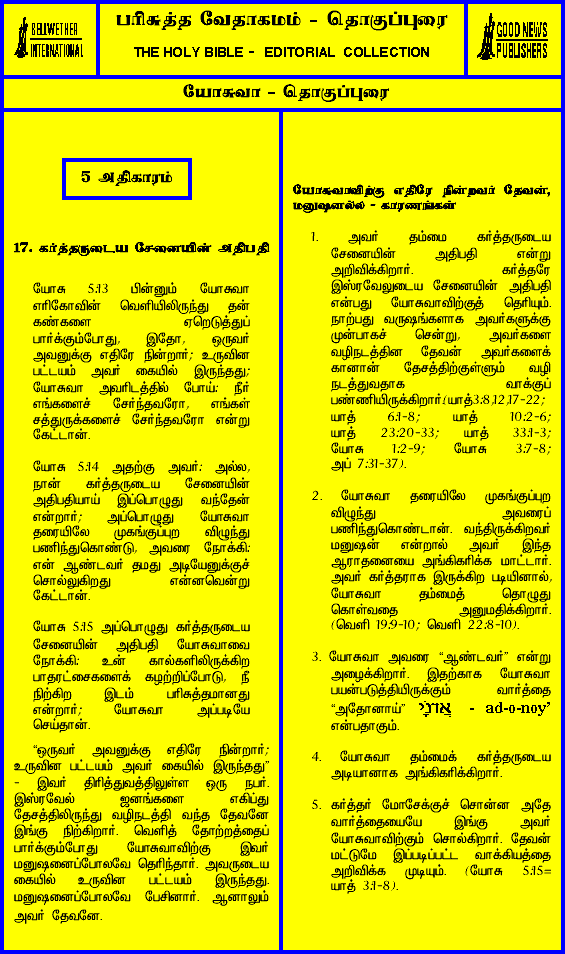 BELLWETHER
INTERNATIONAL
பரிசுத்த வேதாகமம் - தொகுப்புரை
THE HOLY BIBLE - EDITORIAL COLLECTION
GOOD NEWS
PUBLISHERS
யோசுவா - தொகுப்புரை
5 அதிகாரம்
17. கர்த்தருடைய சேனையின் அதிபதி
யோசு 5:13 பின்னும் யோசுவா
எரிகோவின் வெளியிலிருந்து தன்
கண்களை ஏறெடுத்துப்
பார்க்கும்போது, இதோ, ஒருவர்
அவனுக்கு எதிரே நின்றார்; உருவின
பட்டயம் அவர் கையில் இருந்தது;
யோசுவா அவரிடத்தில் போய்: நீர்
எங்களைச் சேர்ந்தவரோ, எங்கள்
சத்துருக்களைச் சேர்ந்தவரோ என்று
கேட்டான்.
யோசு 5:14 அதற்கு அவர்: அல்ல,
நான் கர்த்தருடைய சேனையின்
அதிபதியாய் இப்பொழுது வந்தேன்
என்றார்; அப்பொழுது யோசுவா
தரையிலே முகங்குப்புற விழுந்து
பணிந்துகொண்டு, அவரை நோக்கி:
என் ஆண்டவர் தமது அடியேனுக்குச்
சொல்லுகிறது என்னவென்று
கேட்டான்.
யோசு 5:15 அப்பொழுது கர்த்தருடைய
சேனையின் அதிபதி யோசுவாவை
நோக்கி: உன் கால்களிலிருக்கிற
பாதரட்சைகளைக் கழற்றிப்போடு, நீ
நிற்கிற இடம் பரிசுத்தமானது
என்றார்; யோசுவா அப்படியே
செய்தான்.
“ஒருவர் அவனுக்கு எதிரே நின்றார்;
உருவின பட்டயம் அவர் கையில் இருந்தது”
- இவர் திரித்துவத்திலுள்ள ஒரு நபர்.
இஸ்ரவேல் ஜனங்களை எகிப்து
தேசத்திலிருந்து வழிநடத்தி வந்த தேவனே
இங்கு நிற்கிறார். வெளித் தோற்றத்தைப்
பார்க்கும்போது யோசுவாவிற்கு இவர்
மனுஷனைப்போலவே தெரிந்தார். அவருடைய
கையில் உருவின பட்டயம் இருந்தது.
மனுஷனைப்போலவே பேசினார். ஆனாலும்
அவர் தேவனே.
யோசுவாவிற்கு எதிரே நின்றவர் தேவன்,
மனுஷனல்ல - காரணங்கள்
1. அவர் தம்மை கர்த்தருடைய
சேனையின் அதிபதி என்று
அறிவிக்கிறார். கர்த்தரே
இஸ்ரவேலுடைய சேனையின் அதிபதி
என்பது யோசுவாவிற்குத் தெரியும்.
நாற்பது வருஷங்களாக அவர்களுக்கு
முன்பாகச் சென்று, அவர்களை
வழிநடத்தின தேவன் அவர்களைக்
கானான் தேசத்திற்குள்ளும் வழி
நடத்துவதாக வாக்குப்
பண்ணியிருக்கிறார்.(யாத்3:8,12,17-22;
யாத் 6:1-8; யாத் 10:2-6;
யாத் 23:20-33; யாத் 33:1-3;
யோசு 1:2-9; யோசு 3:7-8;
அப் 7:31-37).
2. யோசுவா தரையிலே முகங்குப்புற
விழுந்து அவரைப்
பணிந்துகொண்டான். வந்திருக்கிறவர்
மனுஷன் என்றால் அவர் இந்த
ஆராதனையை அங்கிகரிக்க மாட்டார்.
அவர் கர்த்தராக இருக்கிற படியினால்,
யோசுவா தம்மைத் தொழுது
கொள்வதை அனுமதிக்கிறார்.
(வெளி 19:9-10; வெளி 22:8-10).
3. யோசுவா அவரை “ஆண்டவர்” என்று
அழைக்கிறார். இதற்காக யோசுவா
பயன்படுத்தியிருக்கும் வார்த்தை
“அதோனாய்” אֲדֹנָי - ad-o-noy’
என்பதாகும்.
4. யோசுவா தம்மைக் கர்த்தருடைய
அடியானாக அங்கிகரிக்கிறார்.
5. கர்த்தர் மோசேக்குச் சொன்ன அதே
வார்த்தையையே இங்கு அவர்
யோசுவாவிற்கும் சொல்கிறார். தேவன்
மட்டுமே இப்படிப்பட்ட வாக்கியத்தை
அறிவிக்க முடியும். (யோசு 5:15=
யாத் 3:1-8).